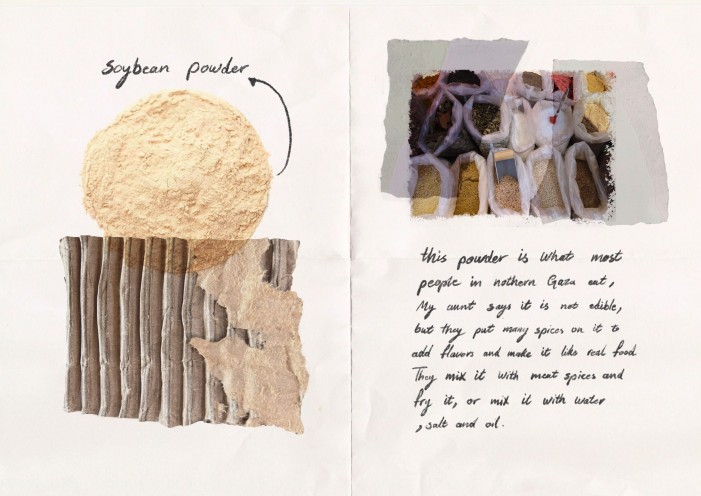 soybean powder
this powder is what most
people in nothern Gaza eat,
My aunt says it is not edible,
but they put many spices on it to
add flavors and make it like real food
They mix it with meat spices and
fry it, or mix it with water
, salt and oil.